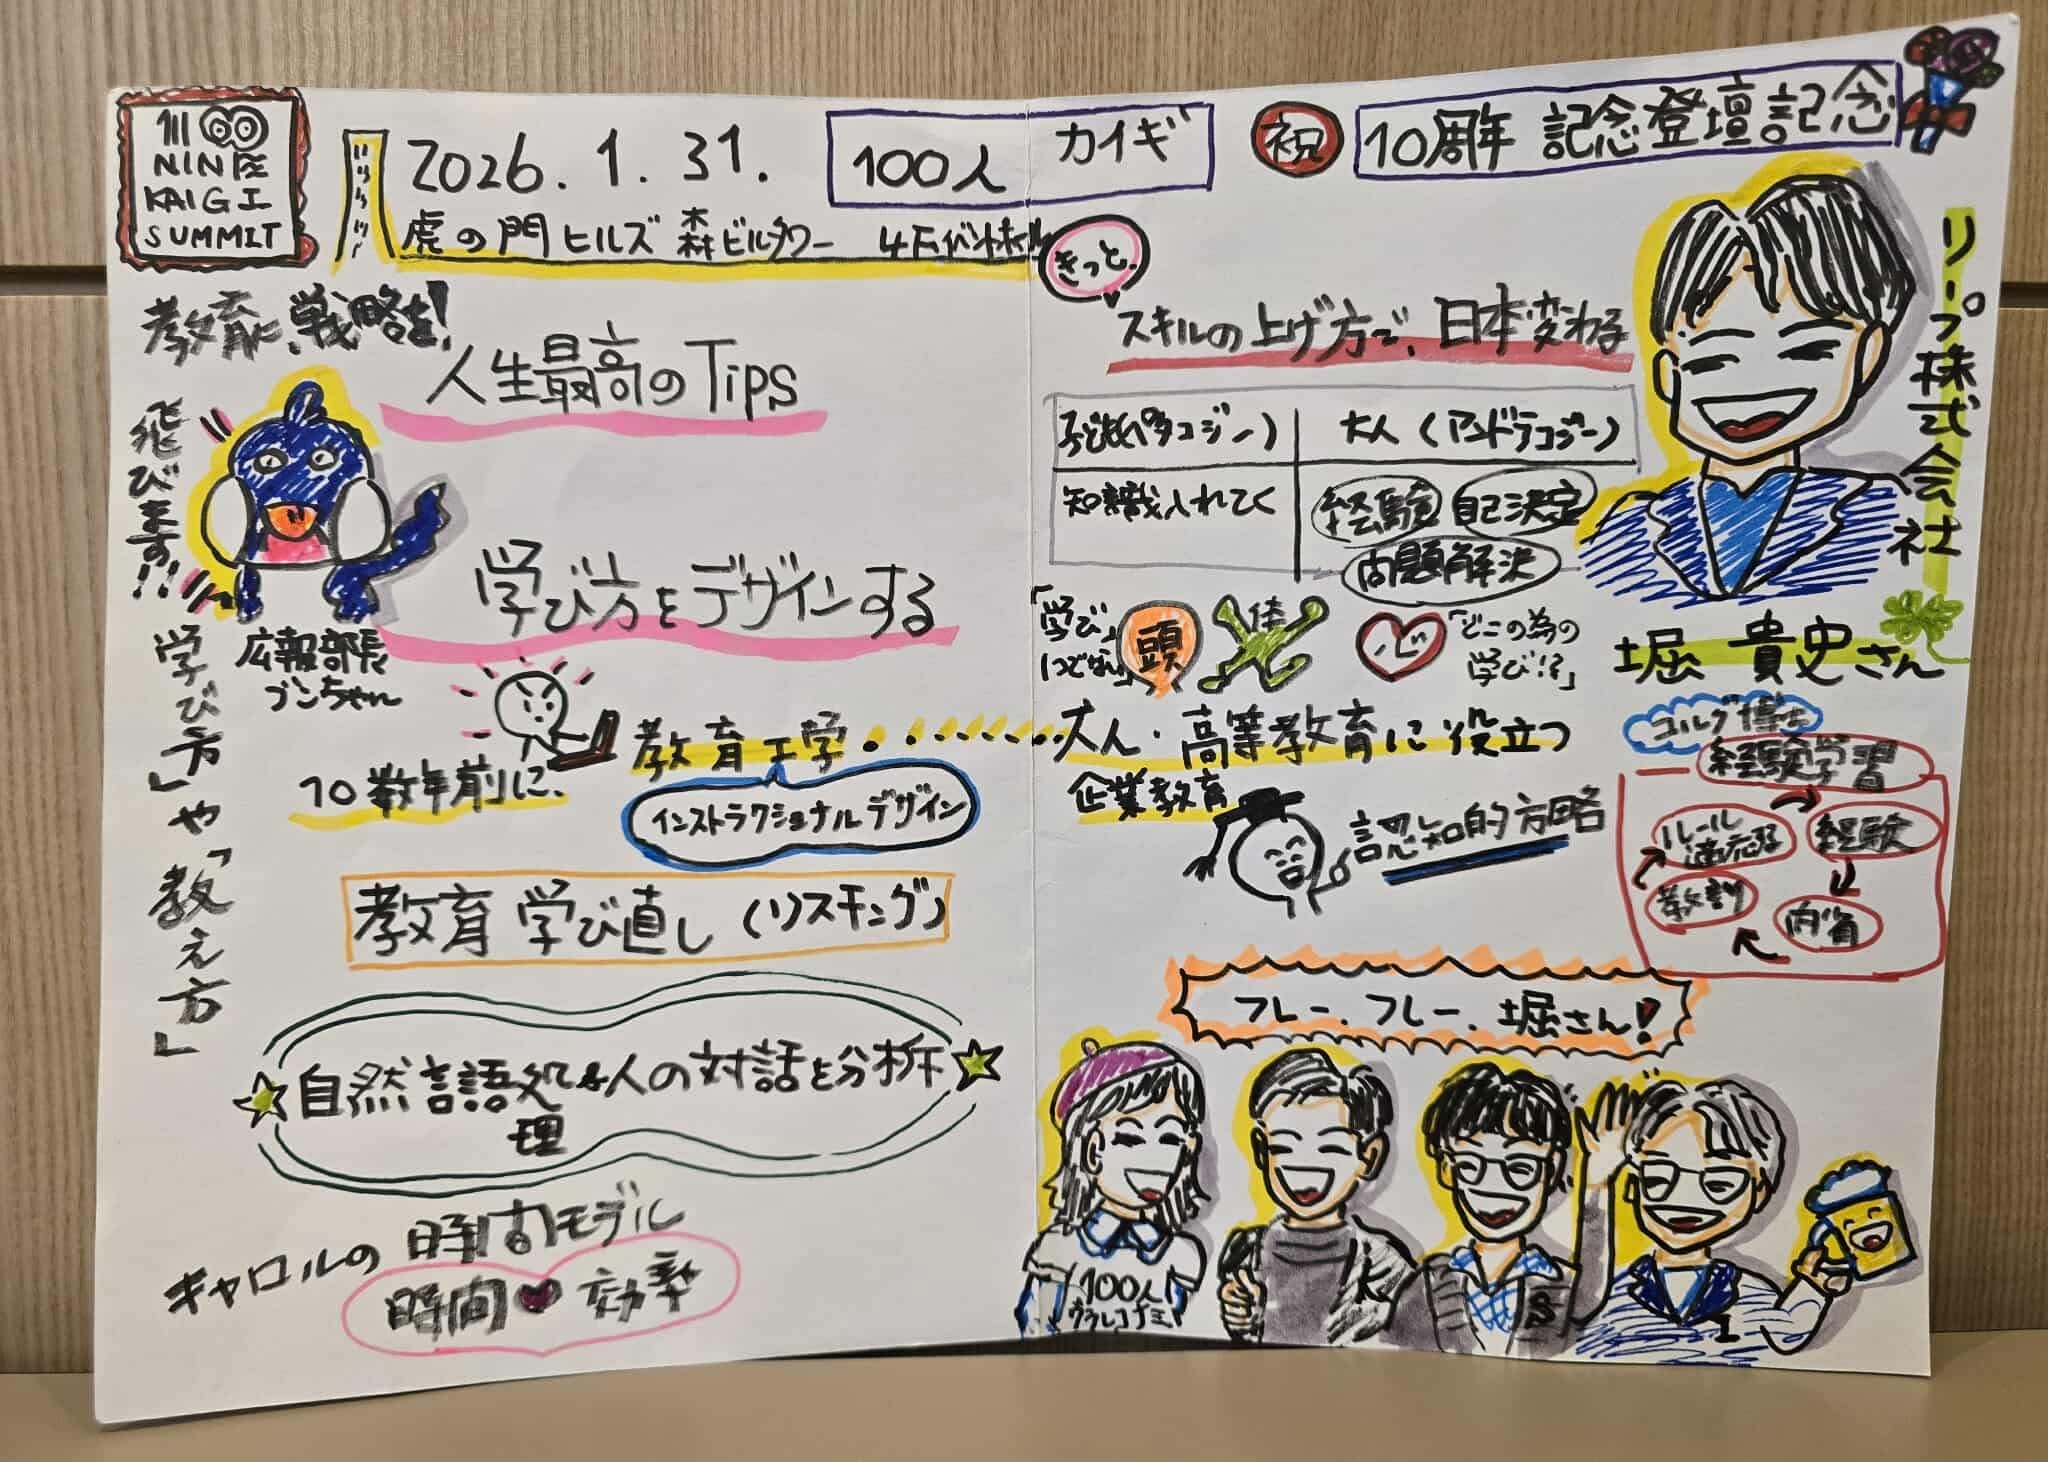 111 100
NIN
KAIGI
SUMMIT
2026.1.31.
100人 カイギ
祝
10周年 記念登壇記念
虎の門ヒルズ 森ビルタワー 4Fイベントホール
教育に、戦略を!
飛びます!!
人生最高のTips
広報部長
ブンちゃん
学び方をデザインする
「学び方」や「教え方」
10数年前に、
教育工学・・・・・・・
インストラクショナルデザイン
教育 学び直し (リスキング)
自然言語処理&人の対話を分析
キャロルの 時間モデル
時間 効率
きっと、
スキルの上げ方で、日本変わる
子ども(ペタゴジー)
大人(アンドラゴジー)
知識入れてく
経験
自己決定
問題解決
「学び」
頭
体
心
「どこの為の
学び!?」
大人・高等教育に役立つ
企業教育
認知的方略
リープ株式会社
堀 貴史さん
コルブ博士
経験学習
ルール
適応
経験
教訓
内省
フレー、フレー、堀さん!
100人
ウラレコナミ
K
S
I